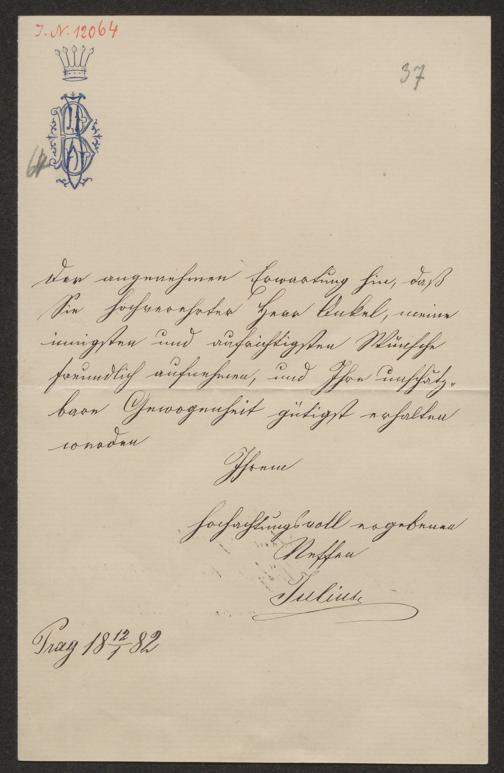 I. N. 12064
37
Der angenehmen Erwartung hin, daß
Sie hochverehrter Herr Onkel, meine
innigsten und aufrichtigsten Wünsche
freundlich aufnehmen, und Ihre unschätz-
bare Gewogenheit gütigst erhalten
werden
Ihrem
hochachtungsvoll ergebenen
Neffen
Julius
Prag 18 12/1 82